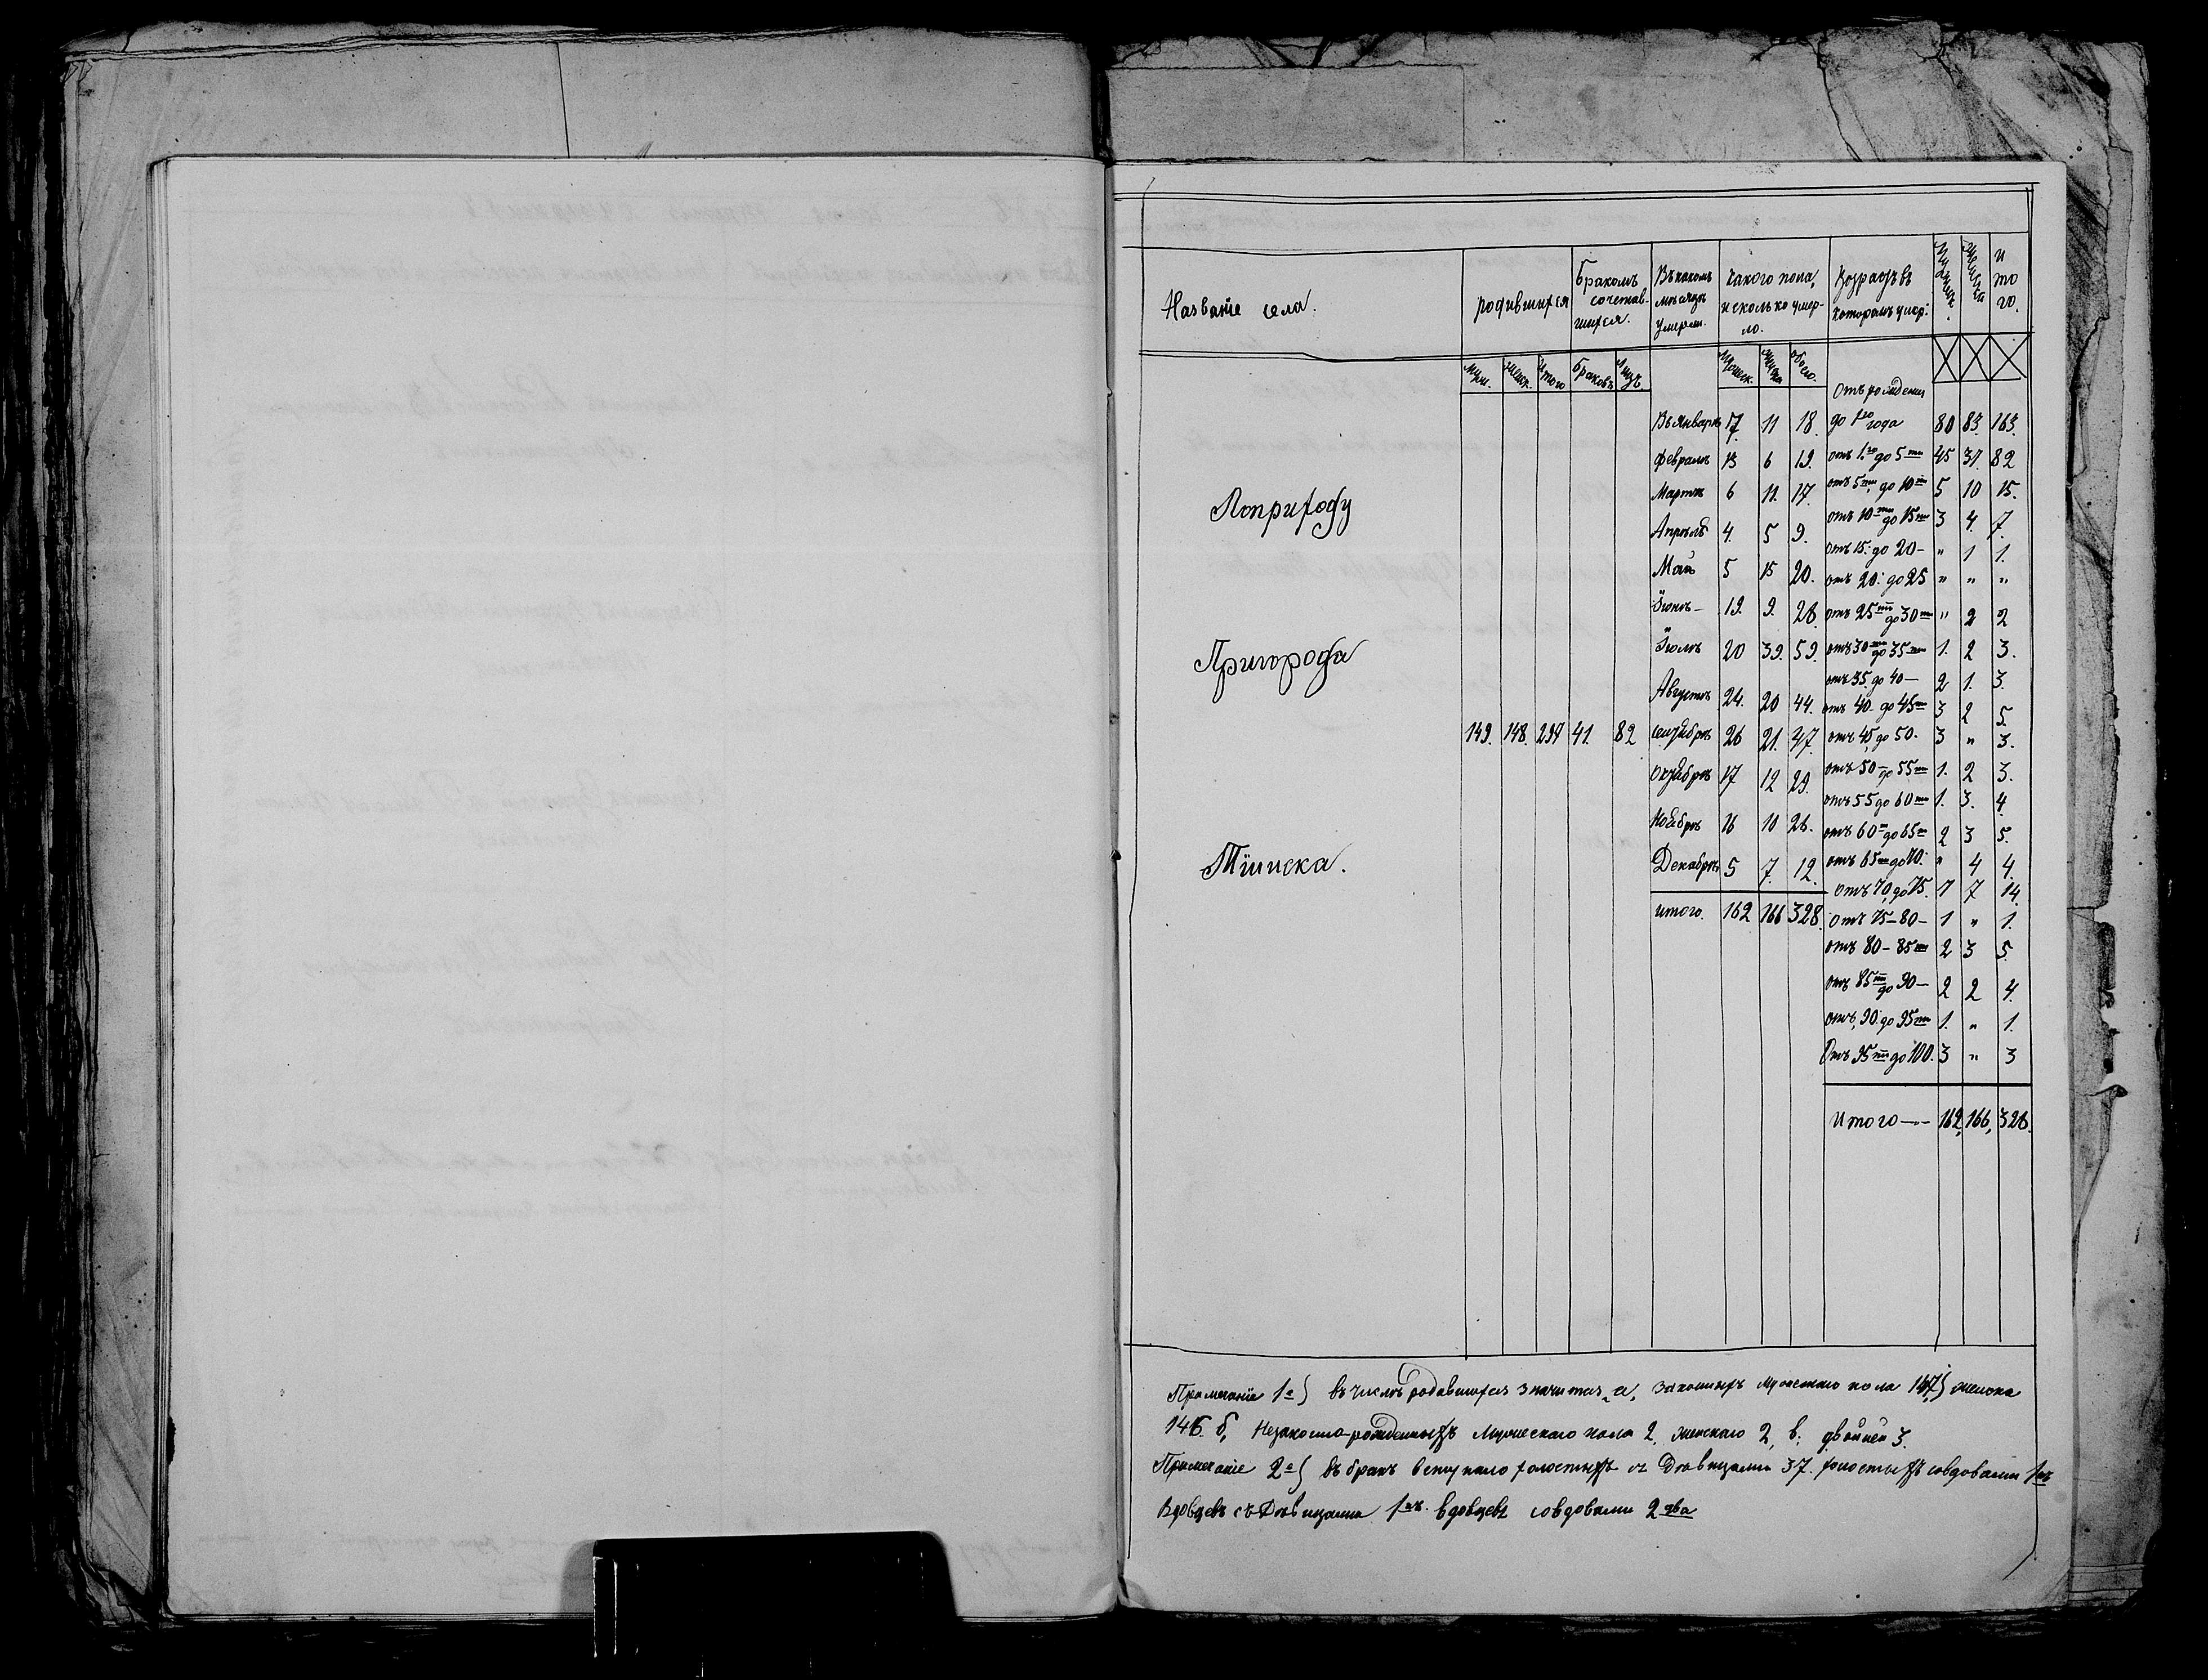 Названіе села.
родившихся
Бракомъ сочетавшихся.
Въ какомъ мѣсяцѣ умерли.
какого пола, и сколько умерло.
Возрастъ въ которомъ умер:
Мужеск.
Женска
Итого.
муж. женск. Итого Браковъ Лицъ. Мужеск. Женска обоего.
Отъ рожденія
Въ Январѣ 17. 11 18. до 1го года 80 83. 163.
Февралѣ 13 6 19. отъ 1.го до 5ти 45 37. 82
Мартѣ 6 11. 17. отъ 5ти до 10ти 5 10 15.
Апрѣлѣ 4. 5 9. отъ 10ти до 15ти 3 4. 7.
отъ 15: до 20- " 1 1.
Маѣ 5 15 20. отъ 20: до 25 " " "
Іюнѣ- 19. 9. 28. отъ 25ти до 30ти " 2 2
Іюлѣ 20 39. 59. отъ 30ти до 35ти 1. 2 3.
отъ 35. до 40- 2 1. 3.
Августѣ 24. 20 44. отъ 40. до 45ти 3 2 5.
149. 148. 297 41. 82 Сентябрѣ 26 21. 47. отъ 45 до 50- 3 " 3.
Октябрѣ 17 12 29. отъ 50- до 55ти 1. 2 3.
отъ 55 до 60ти 1. 3. 4
Ноябрѣ 16 10 26. отъ 60ти до 65ти 2 3 5.
Декабрѣ 5 7. 12. отъ 65ти до 70. " 4 4.
отъ 70, до 75. 7 7 14.
итого. 162 166 328. Отъ 75-80- 1 " 1.
отъ 80-85ти 2 3 5.
отъ 85ти до 90- 2 2 4.
отъ 90. до 95ти 1. " 1.
Отъ 95ти до 100. 3 " 3
Итого -- 162, 166, 328.
По приходу
Пригорода
Тіинска.
Примечаніе 1е) въ числѣ родившихся значится, а, законныхъ мужескаго пола 147) женска
146. б, Незаконно-рожденныхъ Мужескаго пола 2, женскаго 2, в; двойней 3.
Примечаніе 2е) въ бракъ вступало холостыхъ съ Дѣвицами 37. холостыхъ совдовами 1нъ
Вдовцевъ съ Дѣвицами 1нъ. вдовцевъ совдовами 2два